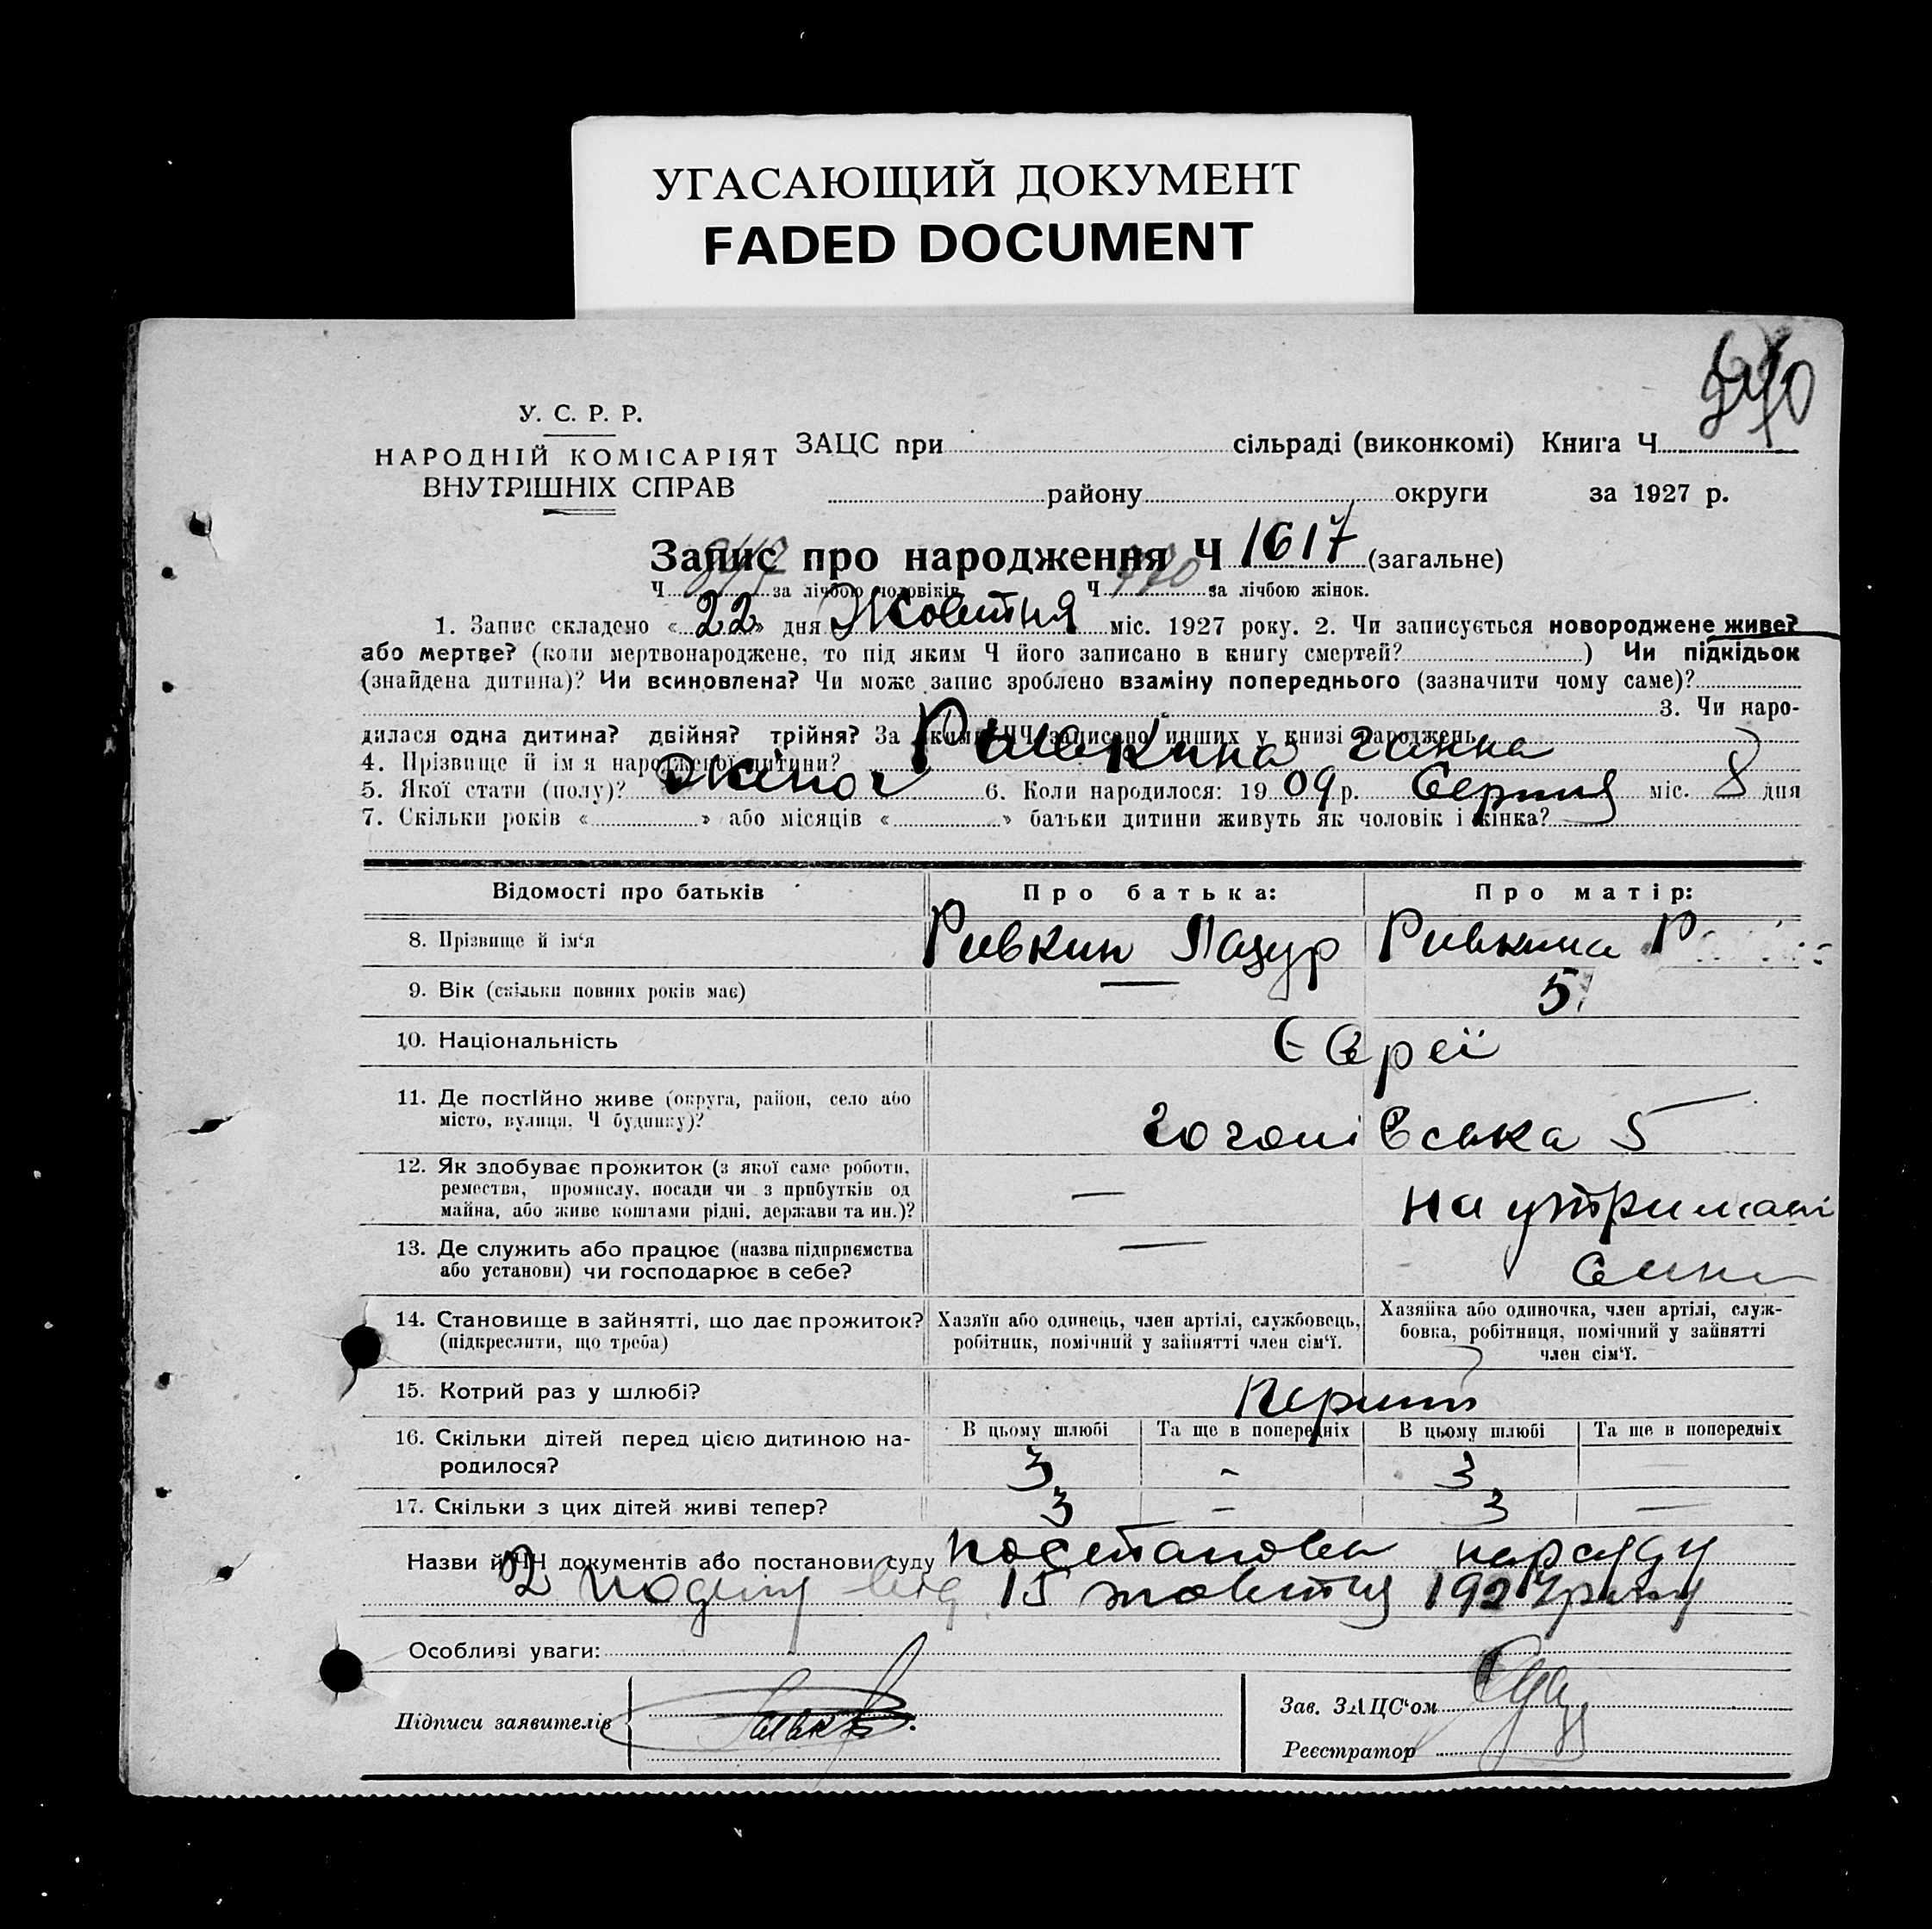 УГАСАЮЩИЙ ДОКУМЕНТ
FADED DOCUMENT
У. С. Р. Р.
НАРОДНІЙ КОМІСАРІЯТ
ВНУТРІШНІХ СПРАВ
ЗАЦС при сільраді (виконкомі) Книга Ч
району округи за 1927 р.
Запис про народження Ч 1617 (загальне)
Ч за лічбою чоловіків Ч за лічбою жінок.
1. Запис складено «22» дня Жовтня міс. 1927 року. 2. Чи записується новороджене живе?
або мертве? (коли мертвонароджене, то під яким Ч його записано в книгу смертей? ) Чи підкідьок
(знайдена дитина)? Чи всиновлена? Чи може запис зроблено взаміну попереднього (зазначити чому саме)?
3. Чи наро-
дилася одна дитина? двійня? трійня? За якими ЧЧ записано инших у книзі народжень
4. Прізвище й ім'я народженої дитини? Рывкина Ганна
5. Якої стати (полу)? жіноч 6. Коли народилося: 1909 р. Серпня міс. 8 дня
7. Скільки років « » або місяців « » батьки дитини живуть як чоловік і жінка?
Відомості про батьків Про батька: Про матір:
8. Прізвище й ім'я Ривкин Лацур Ривкина
9. Вік (скільки повних років має) — 5
10. Національність Євреї
11. Де постійно живе (округа, район, село або
місто, вулиця, Ч будинку)? Гоголівська 5
12. Як здобуває прожиток (з якої саме роботи,
ремества, промислу, посади чи з прибутків од
майна, або живе коштами рідні, держави та ин.)? — на утримані
13. Де служить або працює (назва підприємства
або установи) чи господарює в себе? — сина
14. Становище в зайнятті, що дає прожиток?
(підкреслити, що треба)
Хазяїн або одинець, член артілі, службовець,
робітник, помічний у зайнятті член сім'ї.
Хазяйка або одиночка, член артілі, служ-
бовка, робітниця, помічний у зайнятті
член сім'ї.
15. Котрий раз у шлюбі? Перший
В цьому шлюбі Та ще в попередніх В цьому шлюбі Та ще в попередніх
16. Скільки дітей перед цією дитиною на-
родилося? 3 - 3 —
17. Скільки з цих дітей живі тепер? 3 — 3 —
Назви й ЧЧ документів або постанови суду постанова нарсуду
15 жовтня 1927 року
Особливі уваги:
Підписи заявителів
Зав. ЗАЦС'ом
Реєстратор